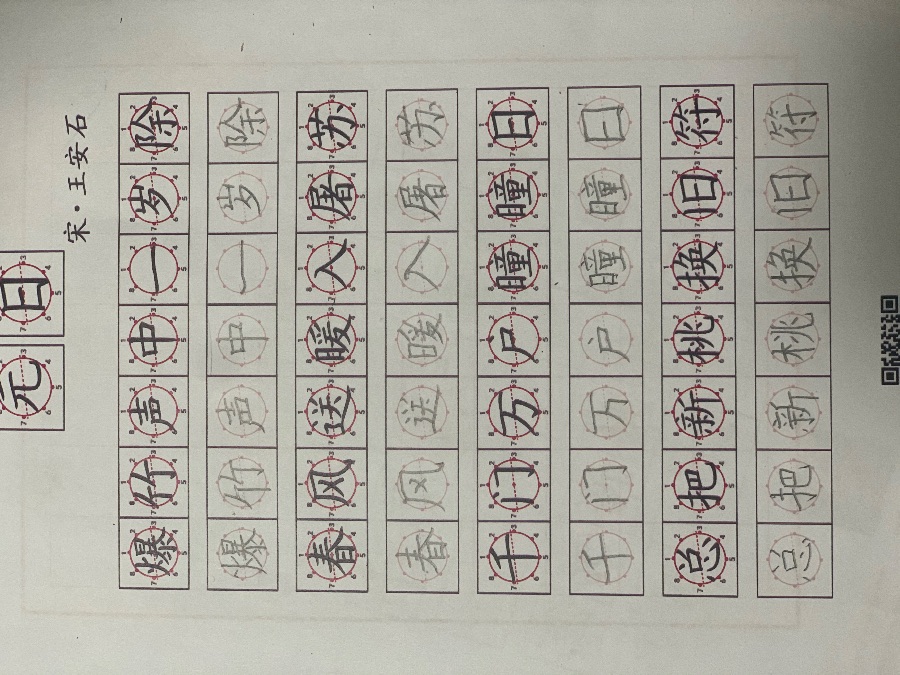 元日
宋·王安石
爆竹声中一岁除
爆竹声中一岁除
春风送暖入屠苏
春风送暖入屠苏
千门万户瞳瞳日
千门万户瞳瞳日
总把新桃换旧符
总把新桃换旧符